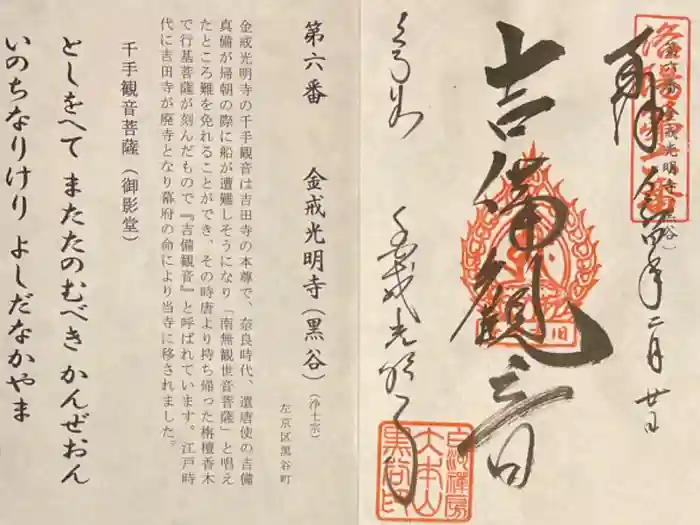 第六番 金戒光明寺(黒谷)
奉拝 年二月廿日
吉備観音
くろ谷 金戒光明寺
白河禅房
大本山
黒谷印
第六番 金戒光明寺(黒谷)(浄土宗)
左京区黒谷町
金戒光明寺の千手観音は吉田寺の本尊で、奈良時代、遣唐使の吉備
真備が帰朝の際に船が遭難しそうになり「南無観世音菩薩」と唱え
たところ難を免れることができ、その時唐より持ち帰った栴檀香木
で行基菩薩が刻んだもので『吉備観音』と呼ばれています。江戸時
代に吉田寺が廃寺となり幕府の命により当寺に移されました。
千手観音菩薩(御影堂)
としをへて またたのむべき かんぜおん
いのちなりけり よしだなかやま